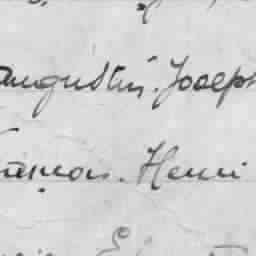 Augustin. Joseph
François. Henri